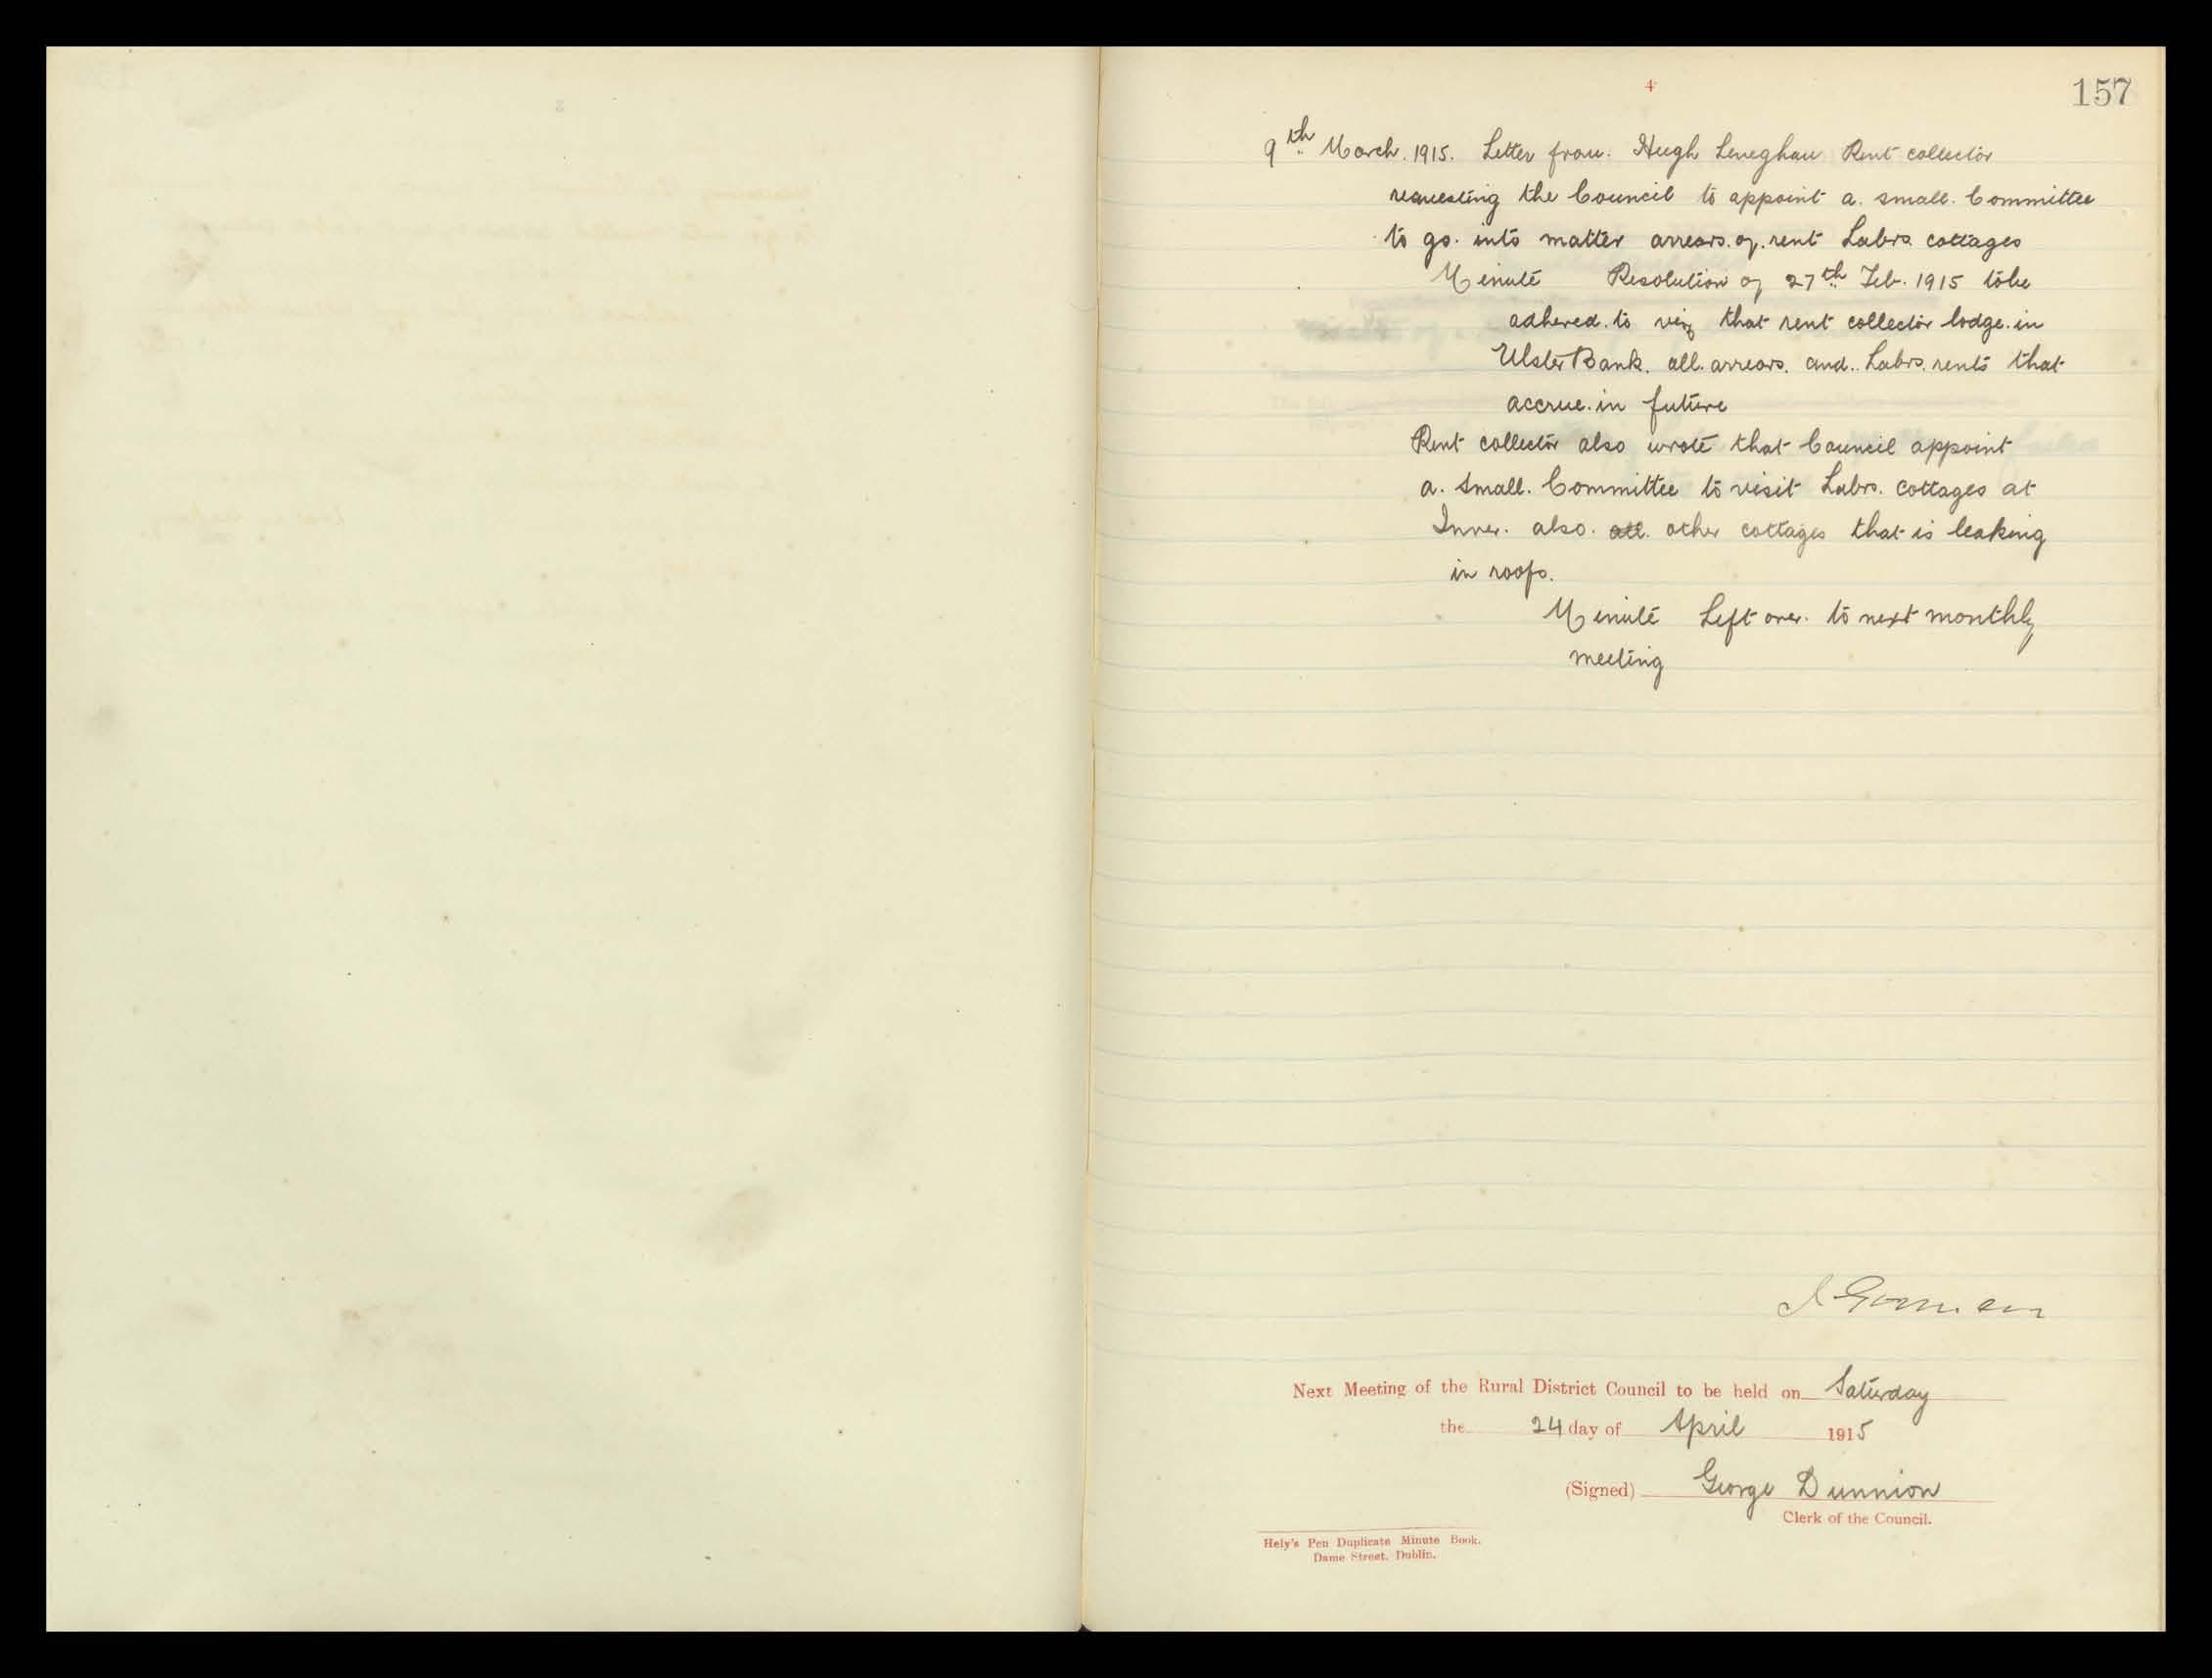 4
157
9th March. 1915. Letter from. Hugh Leneghan Rent collector
requesting the Council to appoint a. small. Committee
to go. into matter arrears. of. rent Labrs. cottages
Minute Resolution of 27th Feb. 1915 to be
adhered. to viz that rent collector lodge. in
Ulster Bank. all. arrears. and.. Labrs. rents that
accrue. in future
Rent collector also wrote that Council appoint
a. small. Committee to visit Labrs. cottages at
Inver. also. all. other cottages that is leaking
in roofs.
Minute Left over. to next monthly
meeting
Gorman
Next Meeting of the Rural District Council to be held on Saturday
the 24 day of April 1915
(Signed) George Dunnion
Clerk of the Council.
Hely's Pen Duplicate Minute Book.
Dame Street, Dublin.